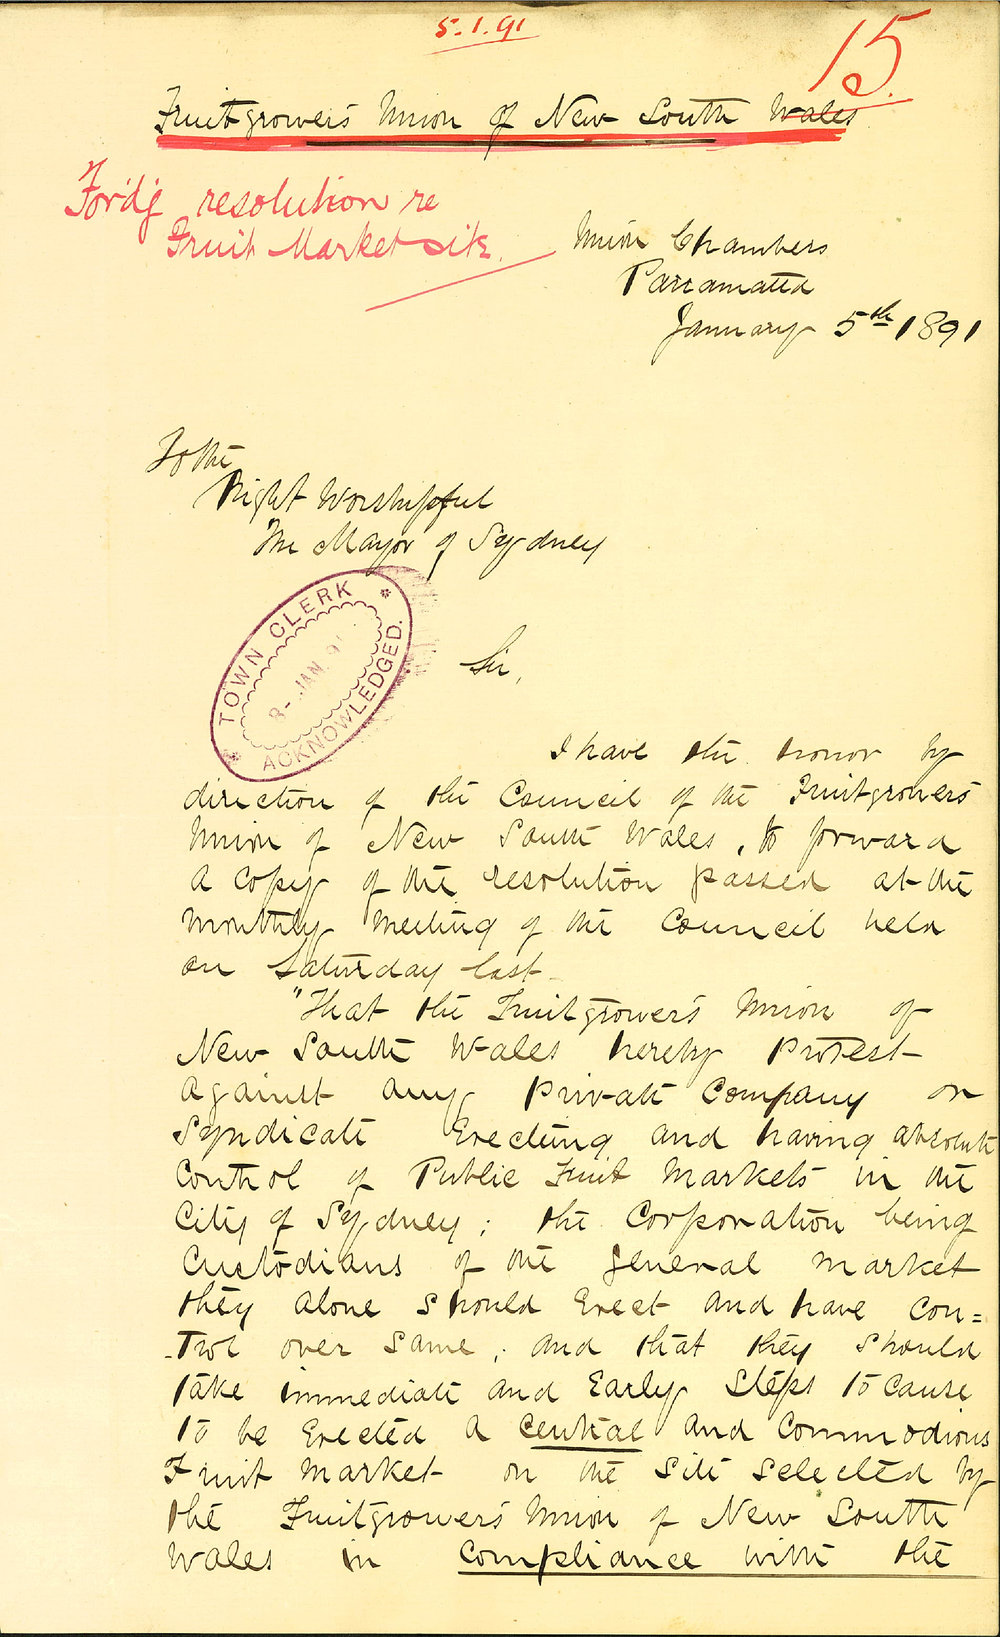 5.1.91
15.
Fruitgrowers' Union of New South Wales
For'd'g resolution re
Fruit Market site.
Union Chambers
Parramatta
January 5th 1891
To the
Right Worshipful
The Mayor of Sydney
TOWN CLERK
8- JAN 91
ACKNOWLEDGED.
Sir,
I have the honor by
direction of the Council of the Fruitgrowers'
Union of New South Wales, to forward
a copy of the resolution passed at the
monthly meeting of the Council held
on Saturday last.
"That the Fruitgrower's Union of
New South Wales hereby protest
against any private Company or
Syndicate Erecting and having absolute
Control of Public Fruit Markets in the
City of Sydney; the Corporation being
Custodians of the general market
they alone should Erect and have con=
-trol over same; and that they should
take immediate and Early Steps to cause
to be Erected a central and Commodious
Fruit Market on the Site Selected by
the Fruitgrower's Union of New South
Wales in compliance with the